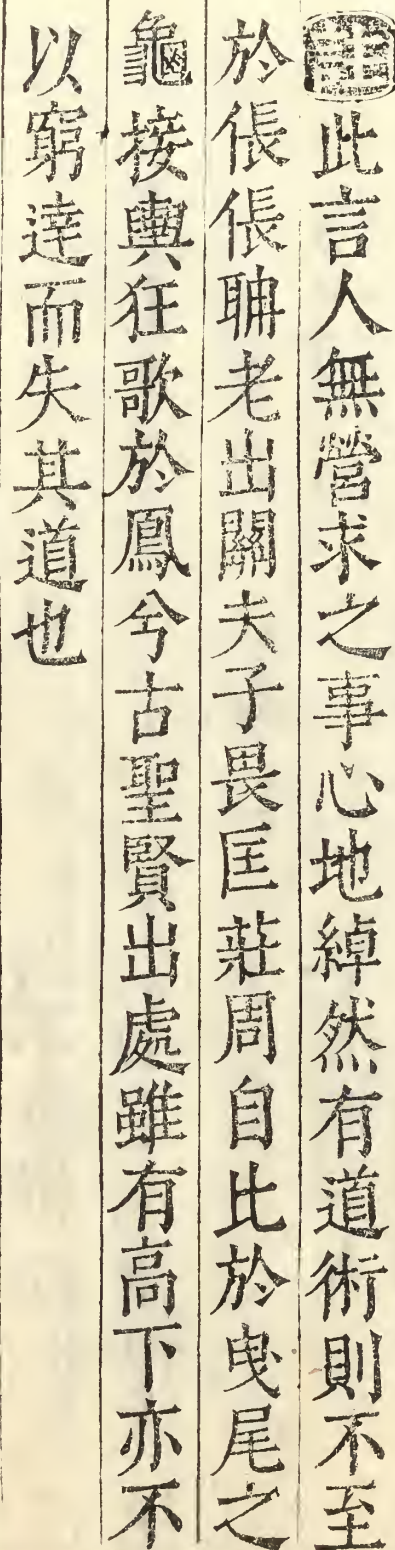 此言人無營求之事心地綽然有道術則不至
於倀倀聃老出關夫子畏匡莊周自比於曵尾之
龜接輿狂歌於鳳兮古聖賢出處雖有高下亦不
以窮達而失其道也